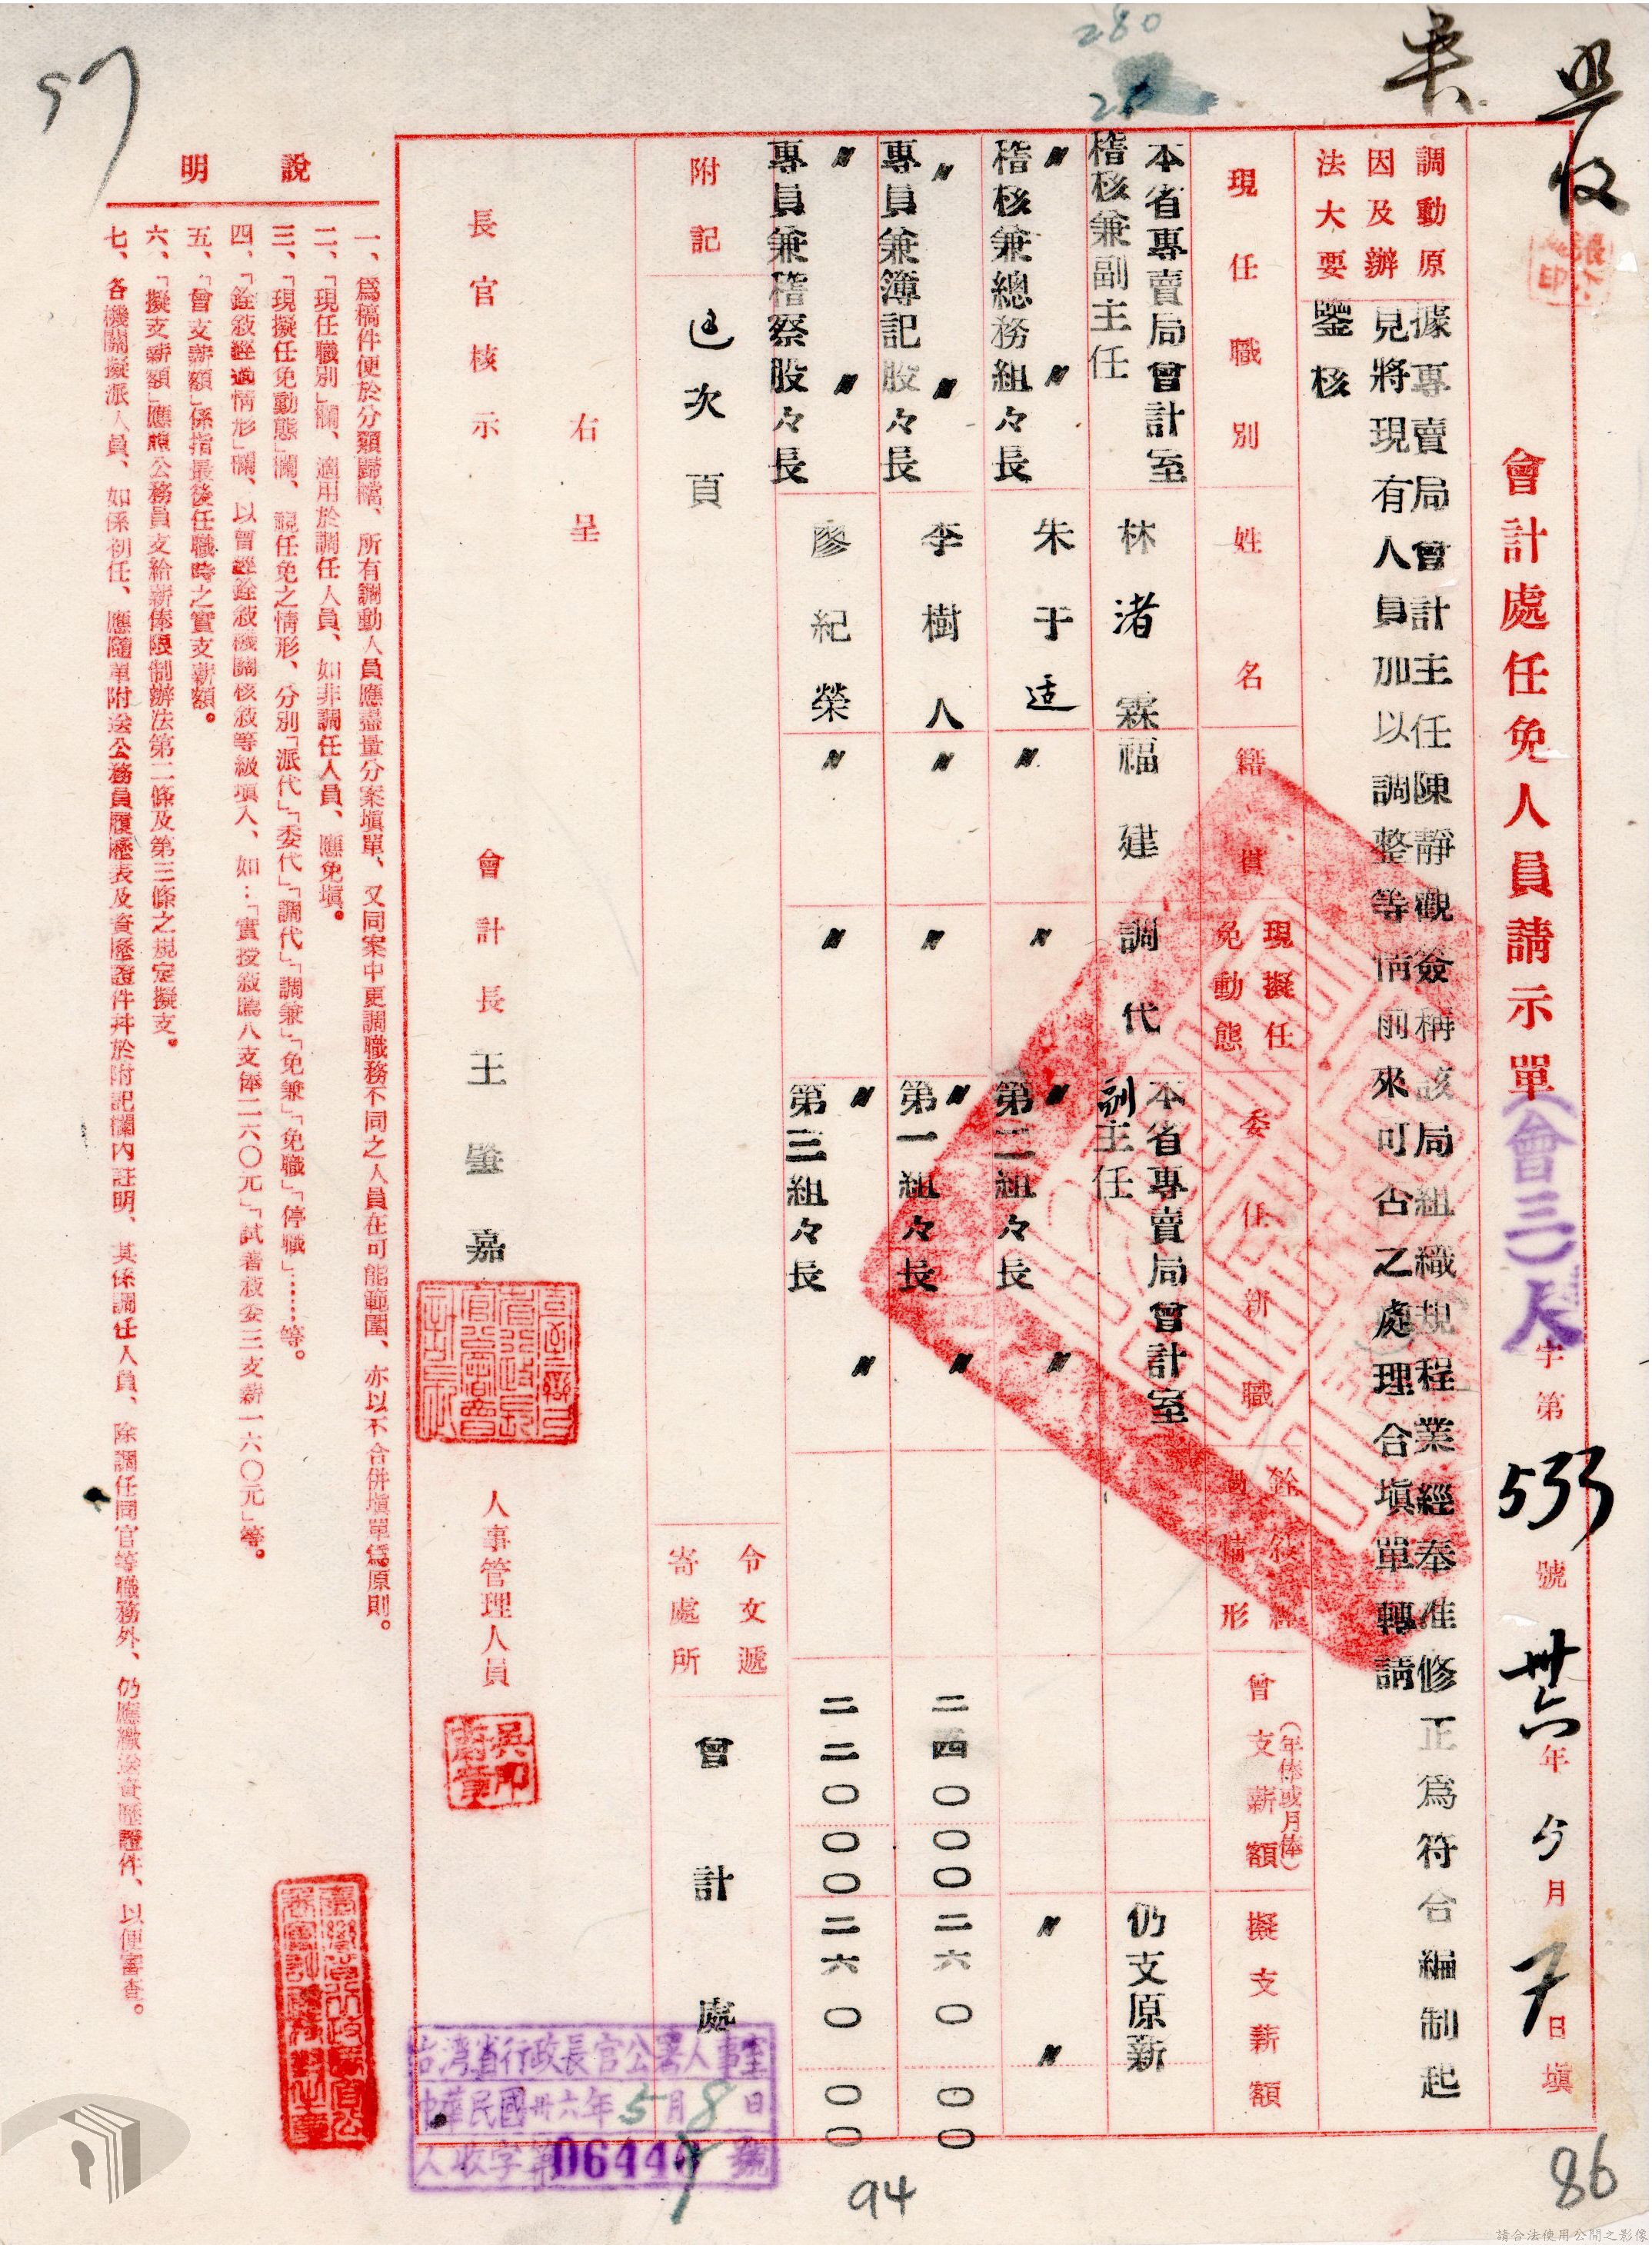 會計處任免人員請示單(會三)人字第533號 卅六年5月7日填
調動原因及辦法大要
據專賣局會計主任陳靜觀簽稱該局組織規程業經奉准修正爲符合編制起
見將現有人員加以調整等情前來可否之處理合塡單轉請
鑒核
現任職別
姓名
籍貫
現擬任免動態
委任新職
銓敍經過情形
曾支薪額(年俸或月俸)
擬支薪額
本省專賣局會計室
稽核兼副主任
林渚霖
福建
調代
本省專賣局會計室
副主任
仍支原薪
〃 〃
稽核兼總務組々長
朱于适
〃
〃
〃 〃
第二組々長
〃 〃
〃 〃
專員兼簿記股々長
李樹人
〃
〃
〃 〃
第一組々長
二四〇〇〇
二六〇〇〇
〃 〃
專員兼稽察股々長
廖紀榮
〃
〃
〃 〃
第三組々長
二二〇〇〇
二六〇〇〇
附記
過次頁
令文遞寄處所
會計處
右呈
長官核示
會計長王肇嘉
人事管理人員
說明
一、爲稿件便於分類歸檔、所有調動人員應盡量分案塡單、又同案中更調職務不同之人員在可能範圍、亦以不合併塡單爲原則。
二、「現任職別」欄、適用於調任人員、如非調任人員、應免塡。
三、「現擬任免動態」欄、視任免之情形、分別「派代」「委代」「調代」「調兼」「免兼」「免職」「停職」……等。
四、「銓敍經過情形」欄、以曾經銓敍機關核敍等級塡入、如…「實授敍薦八支俸二六〇元」「試署敍委三支薪一六〇元」等。
五、「曾支薪額」係指最後任職時之實支薪額。
六、「擬支薪額」應照公務員支給薪俸限制辦法第二條及第三條之規定擬支。
七、各機關擬派人員、如係初任、應隨單附送公務員履歷表及資歷證件幷於附記欄內註明、其係調任人員、除調任同官等職務外、仍應繳送資歷證件、以便審查。
台灣省行政長官公署人事室
中華民國卅六年5月8日
人收字第06444號
280
57
94
86
請合法使用公開之影像